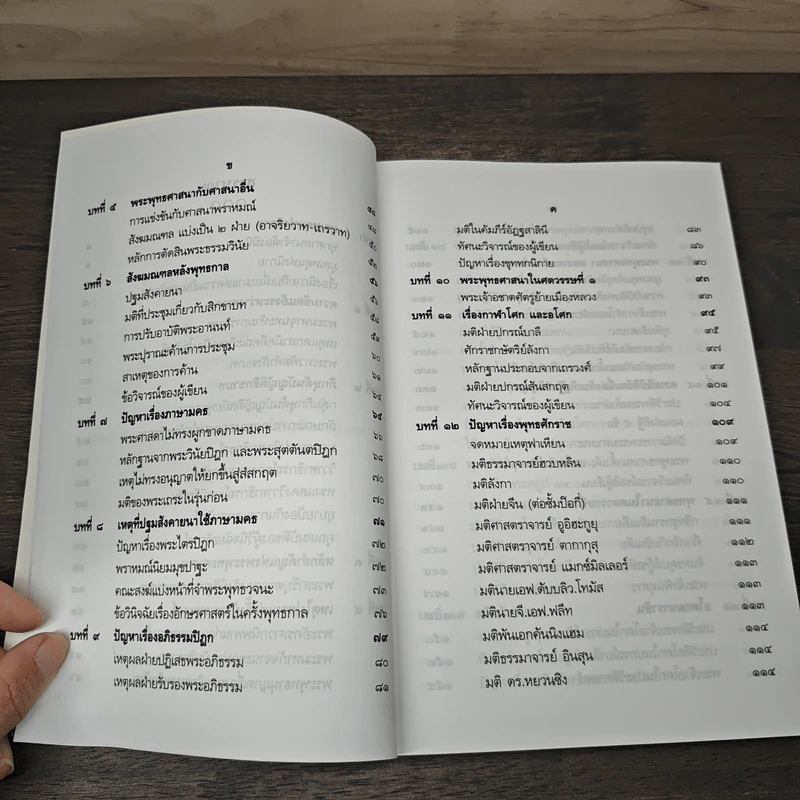 ข
บทที่ ๕ พระพุทธศาสนากับศาสนาอื่น
การแข่งขันกับศาสนาพราหมณ์ ๔๘
สังฆมณฑล แบ่งเป็น ๒ ฝ่าย (อาจริยวาท-เถรวาท) ๕๐
หลักการตัดสินพระธรรมวินัย ๕๒
บทที่ ๖ สังฆมณฑลหลังพุทธกาล ๕๖
ปฐมสังคายนา
มติที่ประชุมเกี่ยวกับสิกขาบท
การปรับอาบัติพระอานนท์
พระปุราณะค้านการประชุม ๖๐
สาเหตุของการค้าน ๖๑
ข้อวิจารณ์ของผู้เขียน
บทที่ ๗ ปัญหาเรื่องภาษามคธ ๖๕
พระศาสดาไม่ทรงผูกขาดภาษามคธ ๖๖
หลักฐานจากพระวินัยปิฎก และพระสุตตันตปิฎก ๖๘
เหตุไม่ทรงอนุญาตให้ยกขึ้นสู่สํสกฤต ๗๐
มติของพระเถระในรุ่นก่อน ๗๐
บทที่ ๘ เหตุที่ปฐมสังคายนาใช้ภาษามคธ ๗๑
ปัญหาเรื่องพระไตรปิฎก ๗๒
พราหมณ์นิยมมุขปาฐะ ๗๒
คณะสงฆ์แบ่งหน้าที่จำพระพุทธวจนะ ๗๓
ข้อวินิจฉัยเรื่องอักษรศาสตร์ในครั้งพุทธกาล ๗๖
บทที่ ๙ ปัญหาเรื่องอภิธรรมปิฎก ๗๙
เหตุผลฝ่ายปฏิเสธพระอภิธรรม ๘๐
เหตุผลฝ่ายรับรองพระอภิธรรม ๘๑
ค
มติในคัมภีร์อัฏฐสาลินี ๘๓
ทัศนะวิจารณ์ของผู้เขียน ๘๖
ปัญหาเรื่องขุททกนิกาย ๙๐
บทที่ ๑๐ พระพุทธศาสนาในศตวรรษที่ ๑ ๙๓
พระเจ้าอชาตศัตรูย้ายเมืองหลวง ๙๓
บทที่ ๑๑ เรื่องกาฬาโศก และอโศก ๙๕
มติฝ่ายปกรณ์บาลี ๙๕
ศักราชกษัตริย์ลังกา ๙๗
หลักฐานประกอบจากเถรวงศ์ ๙๙
มติฝ่ายปกรณ์สันสกฤต ๑๐๑
ทัศนะวิจารณ์ของผู้เขียน ๑๐๔
บทที่ ๑๒ ปัญหาเรื่องพุทธศักราช ๑๐๙
จดหมายเหตุฟาเหียน ๑๐๙
มติธรรมาจารย์ฮวบหลิน ๑๑๐
มติลังกา ๑๑๐
มติฝ่ายจีน (ต่อซั้มป๊อกี่) ๑๑๑
มติศาสตราจารย์ อูอิฮะกุยุ ๑๑๑
มติศาสตราจารย์ ตากากุสุ ๑๑๒
มติศาสตราจารย์ แมกซ์มิลเลอร์ ๑๑๓
มตินายเอฟ.ดับบลิว.โทมัส ๑๑๓
มตินายจี.เอฟ.ฟลีท ๑๑๓
มติพันเอกคันนิงแฮม ๑๑๔
มติธรรมาจารย์ อินสุน ๑๑๔
มติ ดร.หยวนซิง ๑๑๔